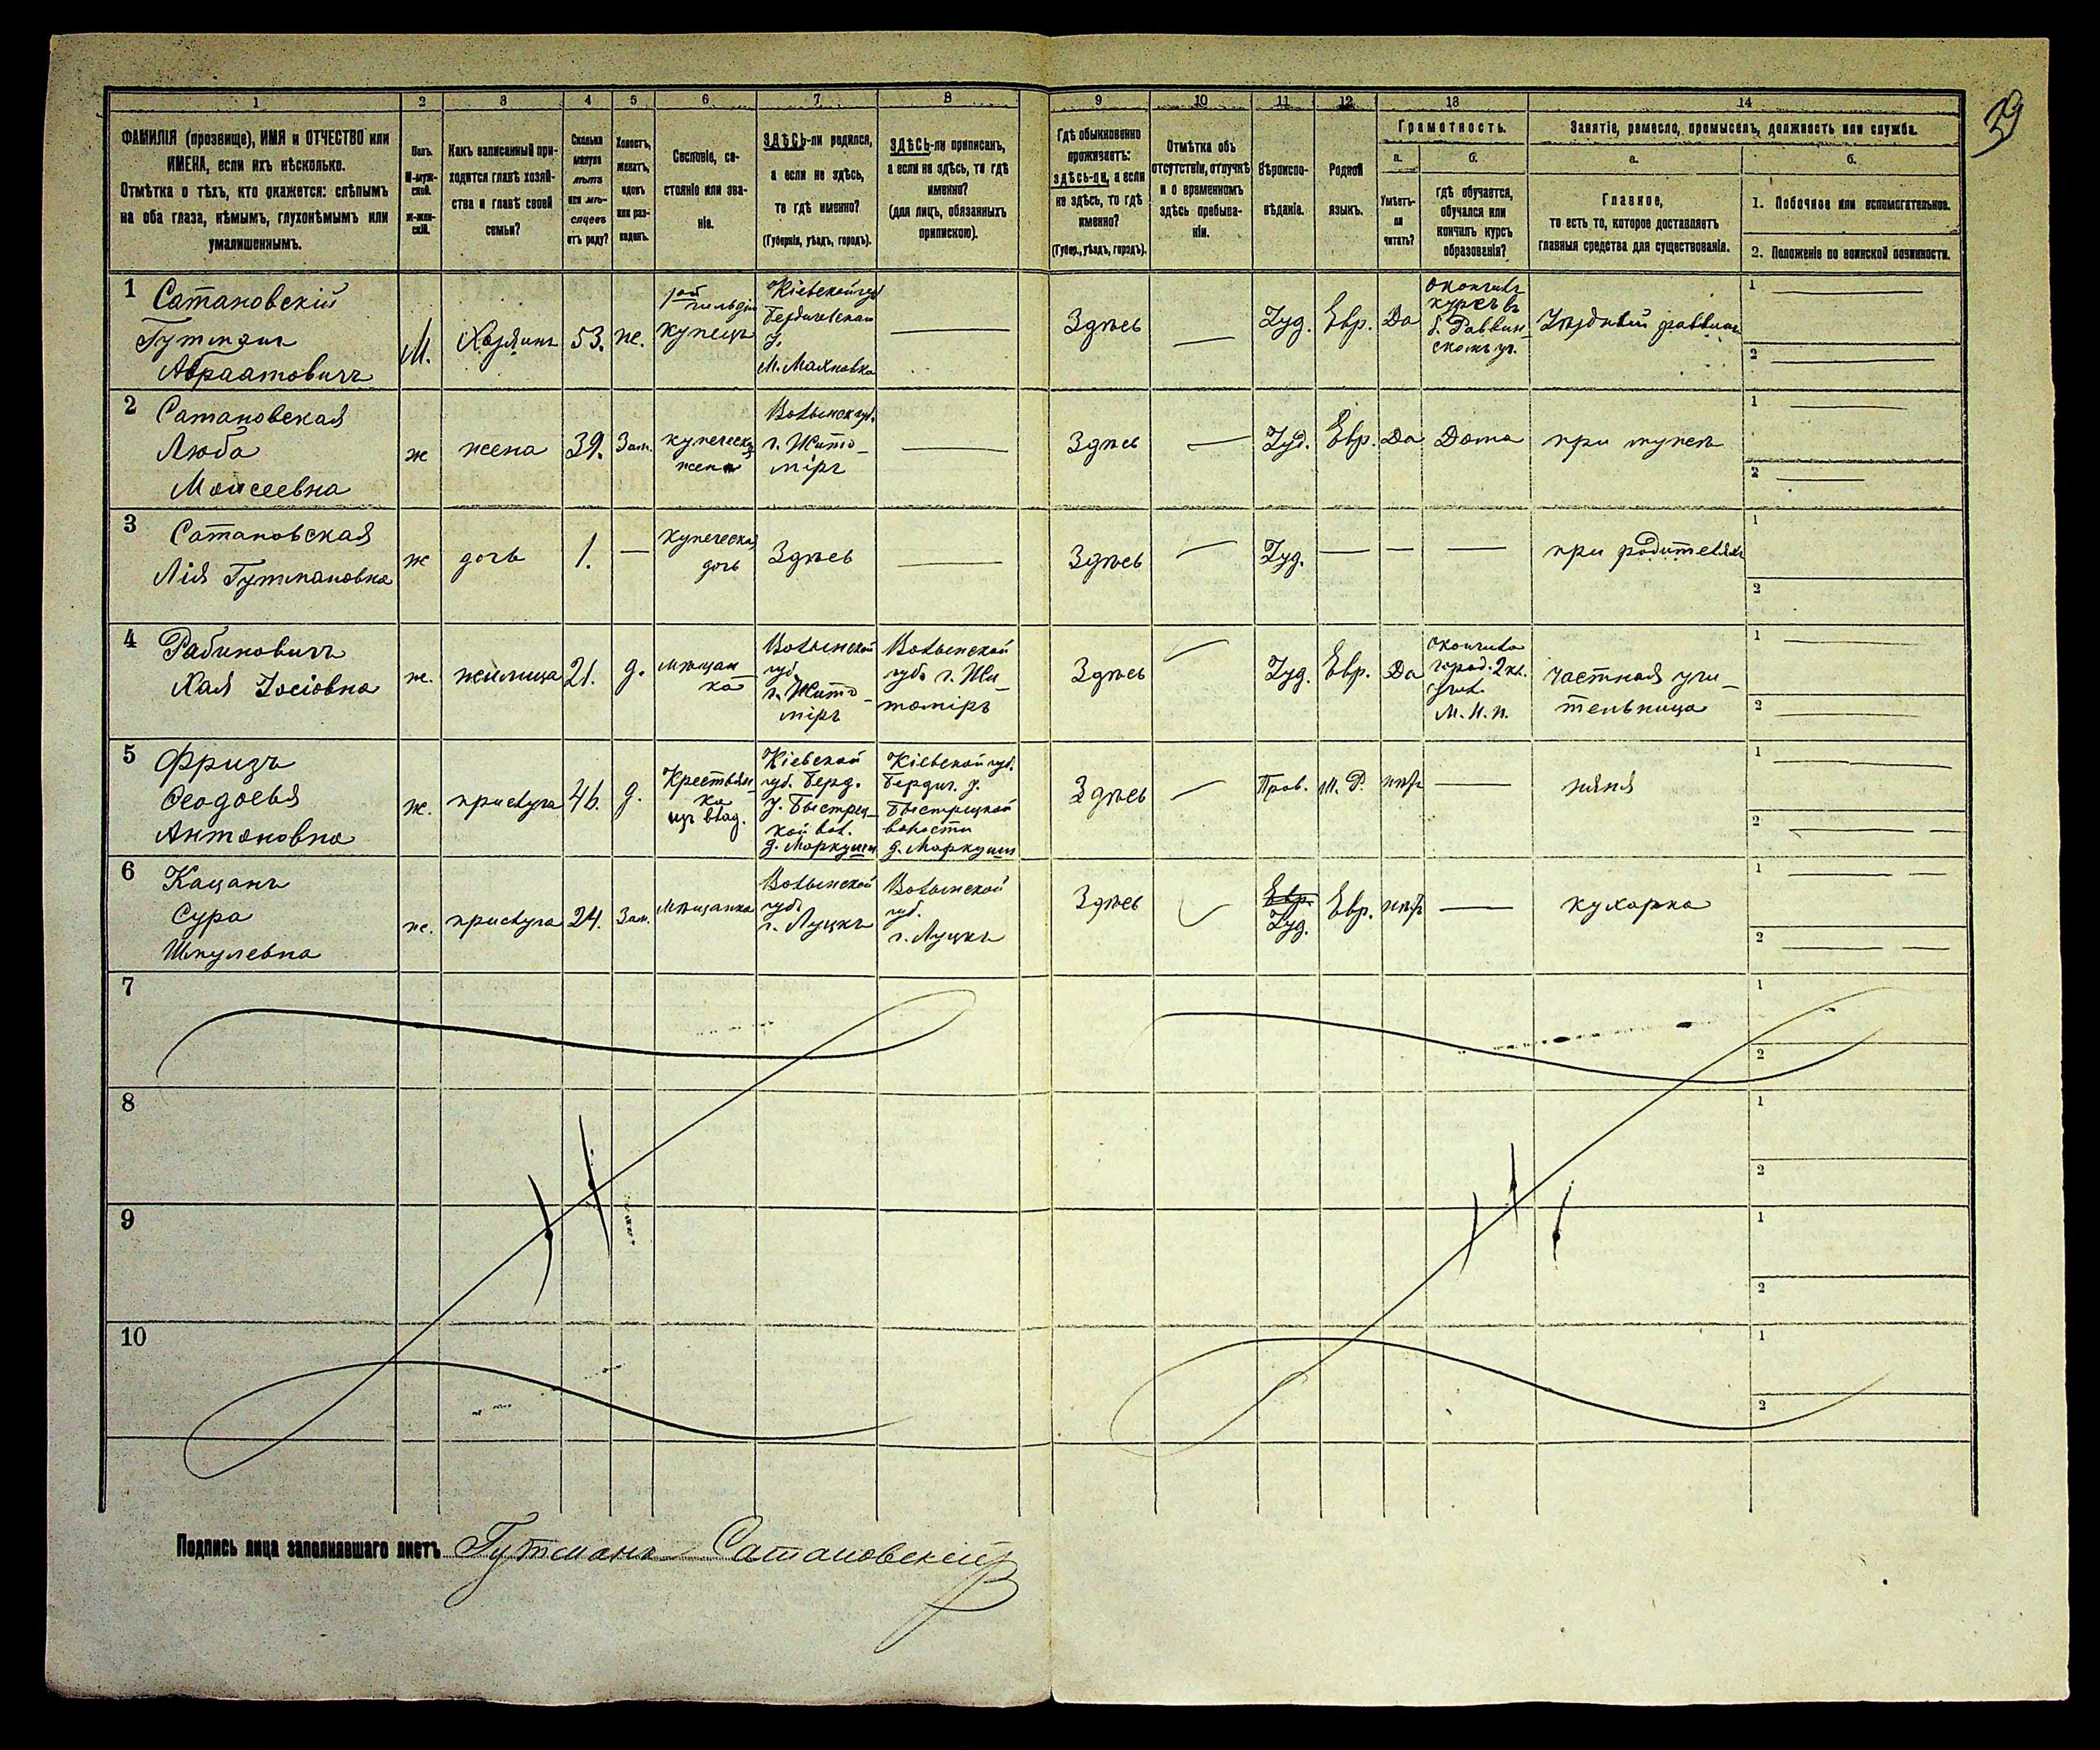 39
1 2 3 4 5 6 7 8 9 10 11 12 13 14
ФАМИЛІЯ (прозвище), ИМЯ и ОТЧЕСТВО или
ИМЕНА, если ихъ нѣсколько.
Отмѣтка о тѣхъ, кто окажется: слѣпымъ
на оба глаза, нѣмымъ, глухонѣмымъ или
умалишеннымъ.
Полъ.
М-муж-
ской.
Ж-жен-
скій.
Какъ записанный при-
ходится главѣ хозяй-
ства и главѣ своей
семьи?
Сколько
минуло
лѣтъ
или мѣ-
сяцевъ
отъ роду?
Холостъ,
женатъ,
вдовъ
или раз-
веденъ.
Сословіе, со-
стояніе или зва-
ніе.
ЗДѢСЬ-ли родился,
а если не здѣсь,
то гдѣ именно?
(Губернія, уѣздъ, городъ).
ЗДѢСЬ-ли приписанъ,
а если не здѣсь, то гдѣ
именно?
(для лицъ, обязанныхъ
припискою).
Гдѣ обыкновенно
проживаетъ:
здѣсь-ли, а если
не здѣсь, то гдѣ
именно?
(Губер., уѣздъ, городъ).
Отмѣтка объ
отсутствіи, отлучкѣ
и о временномъ
здѣсь пребыва-
ніи.
Вѣроиспо-
вѣданіе.
Родной
языкъ.
Грамотность.
а.
Умѣетъ-
ли
читать?
б.
гдѣ обучается,
обучался или
кончилъ курсъ
образованія?
Занятіе, ремесло, промыселъ, должность или служба.
а.
Главное,
то есть то, которое доставляетъ
главныя средства для существованія.
б.
1. Побочное или вспомогательное.
2. Положеніе по воинской повинности.
1 Сатановскій
Гутманъ
Абрамовичъ
М.
Хозяинъ
53.
же.
гильдіи
купецъ
Кіевской губ
Бердичевскаго
у.
м. Махновка
Здѣсь
Іуд.
Евр.
Да
окончилъ
курсъ въ
б. Раввин-
скомъ уч.
раввинъ
1
2
2 Сатановская
Люба
Моисеевна
ж
жена
39.
Зам.
купеческая
жена
Волынск губ.
г. Жито-
міръ
Здѣсь
Іуд.
Евр.
Да
Дома
при мужѣ
1
2
3 Сатановская
Лія Гутмановна
ж
дочь
1.
купеческая
дочь
Здѣсь
Здѣсь
Іуд.
при родителяхъ
1
2
4 Рабиновичъ
Хая Іосіовна
ж.
жилица
21.
д.
мѣщан
ка
Волынской
губ.
г. Жито-
міръ
Волынской
губ. г. Жи-
томіръ
Здѣсь
Іуд.
Евр.
Да
окончила
город. 2 кл.
учил.
М. Н. П.
частная учи-
тельница
1
2
5 Фризъ
Ѳеодосья
Антоновна
ж.
прислуга
46.
д.
Крестьян-
ка
изъ влад.
Кіевской
губ. Берд.
у. Быстриц-
кой вол.
д. Маркуши
Кіевской губ.
Бердич. у.
Быстрицкой
волости
д. Маркуши
Здѣсь
Прав.
М. Р.
нѣтъ
няня
1
2
6 Кацанъ
Сура
Шмулевна
ж.
прислуга
24.
Зам.
мѣщанка
Волынской
губ.
г. Луцкъ
Волынской
губ.
г. Луцкъ
Здѣсь
Евр.
Іуд.
Евр.
нѣтъ
кухарка
1
2
7
1
2
8
1
2
9
1
2
10
1
2
Подпись лица заполнявшаго листъ Гутманъ Сатановскій